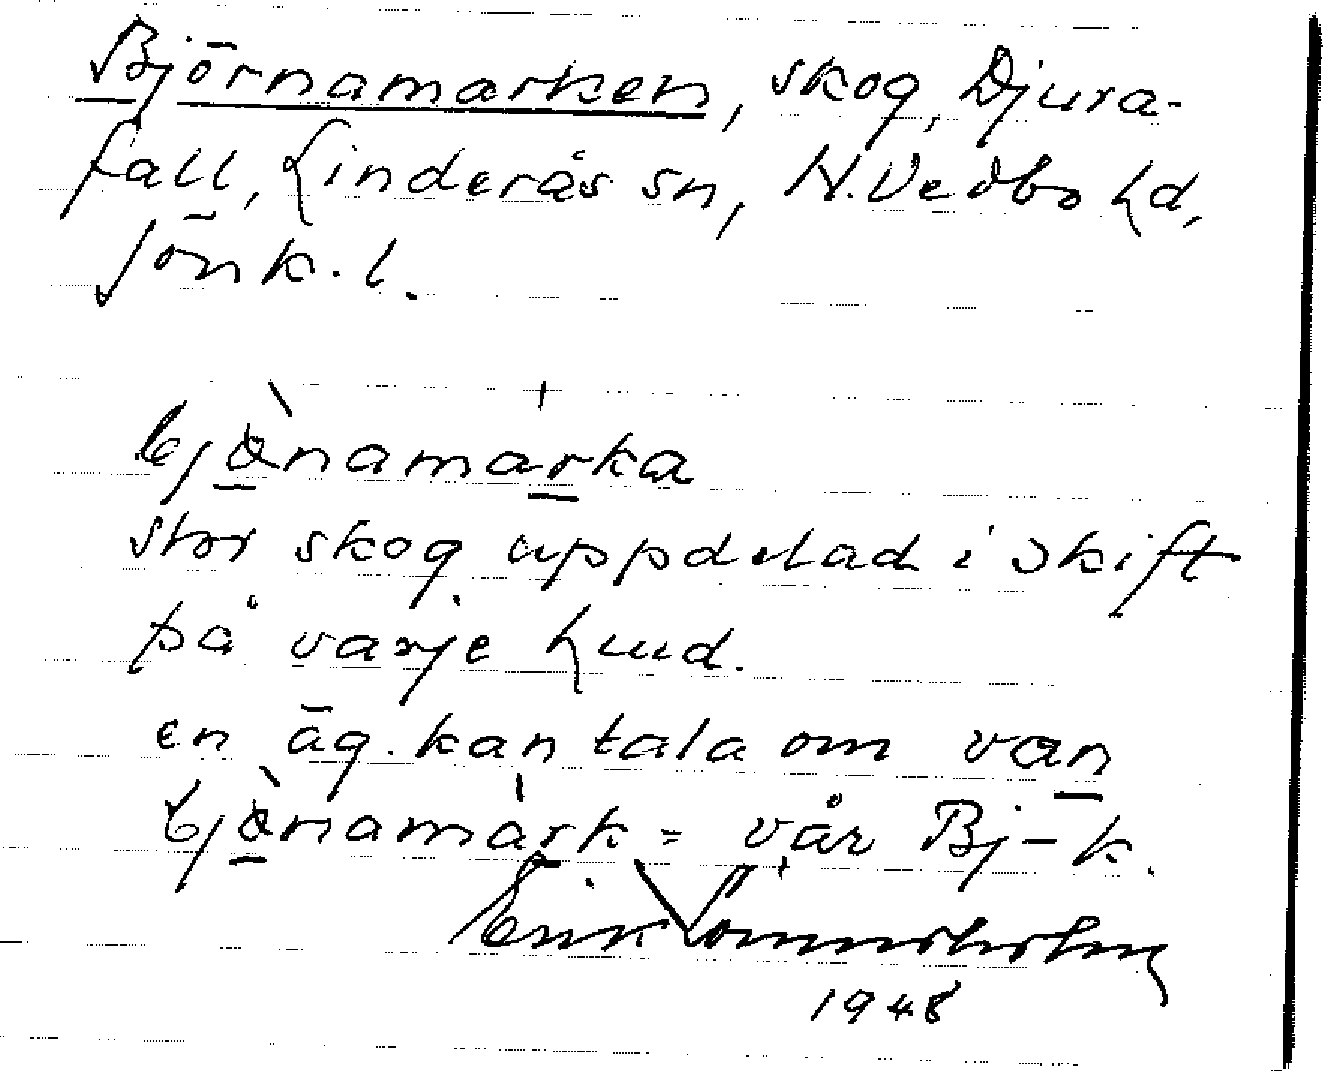 Björnamarken, skog, Djura-
fall, Linderås sn, N. Vedbo hd,
Jönk. l.
bjɷ̀namárka
stor skog uppdelad i skift
på varje hmd.
en äg. kan tala om van
bjɷ̀namárk = vår Bj–k.
Erik
1948